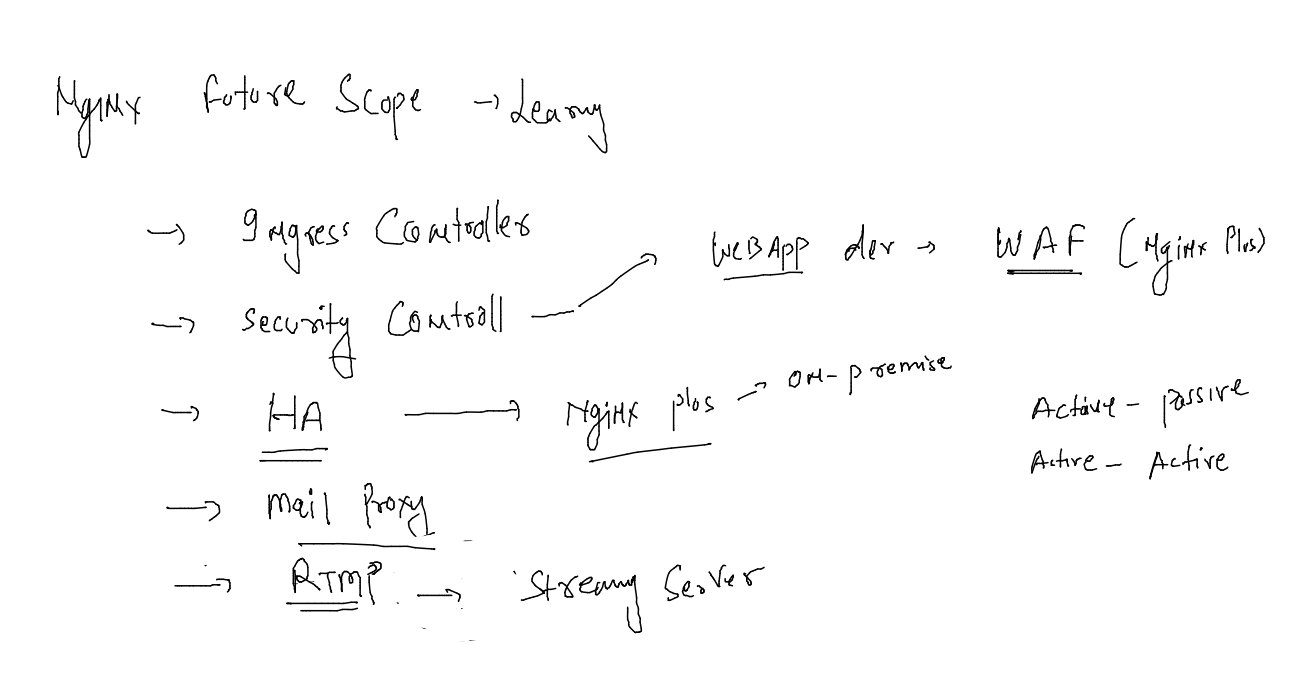 Nginx Future Scope → Learng
→ Ingress Controller
→ Security Controll → WEBApp dev → WAF (Nginx Plus)
→ HA → Nginx plus → ON-premise
Active - passive
Active - Active
→ Mail Proxy
→ RTMP → Streamng Server